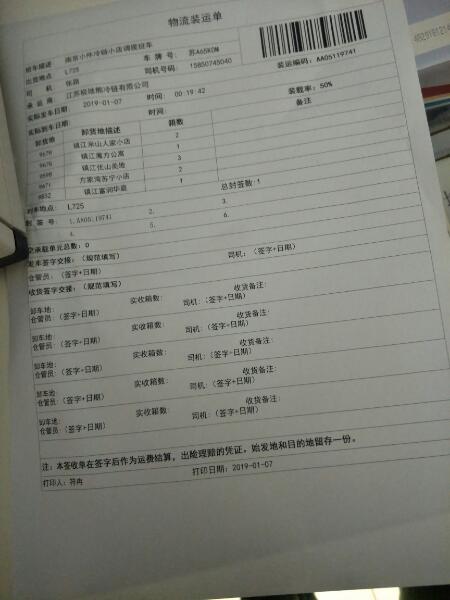 物流装运单
班车描述: 南京小件冷链小店调拨班车
出发地点: L725 车 牌 号: 苏A65K0M
司 机: 张颖 司机号码: 15850745040 装运编码: AA05119741
承 运 商: 江苏极地熊冷链有限公司
实际发车日期: 2019-01-07 时间: 00:19:42 装载率: 50%
实际到车日期: 时间:
卸货地 卸货地描述 箱数 备注
9679 镇江米山人家小店 2
9678 镇江魔方公寓 1
9598 镇江优山美地 3
9671 方家湾苏宁小店 2
9832 镇江富润华庭 1
到车地点: L725 总封签数:1
封 签 号: 1.AA05119741 2. 3.
4. 5. 6.
空承载单元总数: 0
发车签字交接: (规范填写)
仓管员: (签字+日期) 司机: (签字+日期)
收货签字交接: (规范填写)
卸车地: 实收箱数: 收货备注:
仓管员: (签字+日期) 司机: (签字+日期)
卸车地: 实收箱数: 收货备注:
仓管员: (签字+日期) 司机: (签字+日期)
卸车地: 实收箱数: 收货备注:
仓管员: (签字+日期) 司机: (签字+日期)
卸车地: 实收箱数: 收货备注:
仓管员: (签字+日期) 司机: (签字+日期)
卸车地: 实收箱数: 收货备注:
仓管员: (签字+日期) 司机: (签字+日期)
注: 本签收单在签字后作为运费结算, 出险理赔的凭证, 始发地和目的地留存一份。
打印人: 符冉 打印日期: 2019-01-07